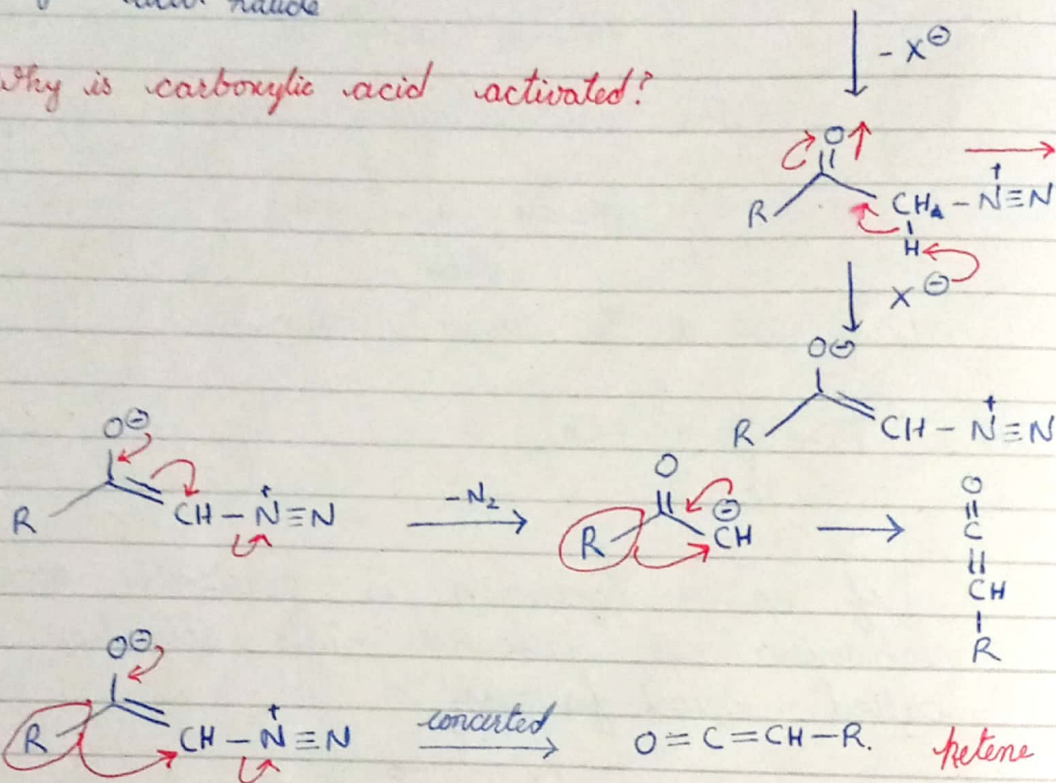 halide
- X⊖
Why is carboxylic acid activated?
O
R CH₂ - N⁺≡N
H
X ⊖
O⊖
R CH - N⁺≡N
O⊖
R CH - N⁺≡N -N₂ R O ⊖ CH O=C=CH-R
O⊖
R CH - N⁺≡N concerted O=C=CH-R. ketene